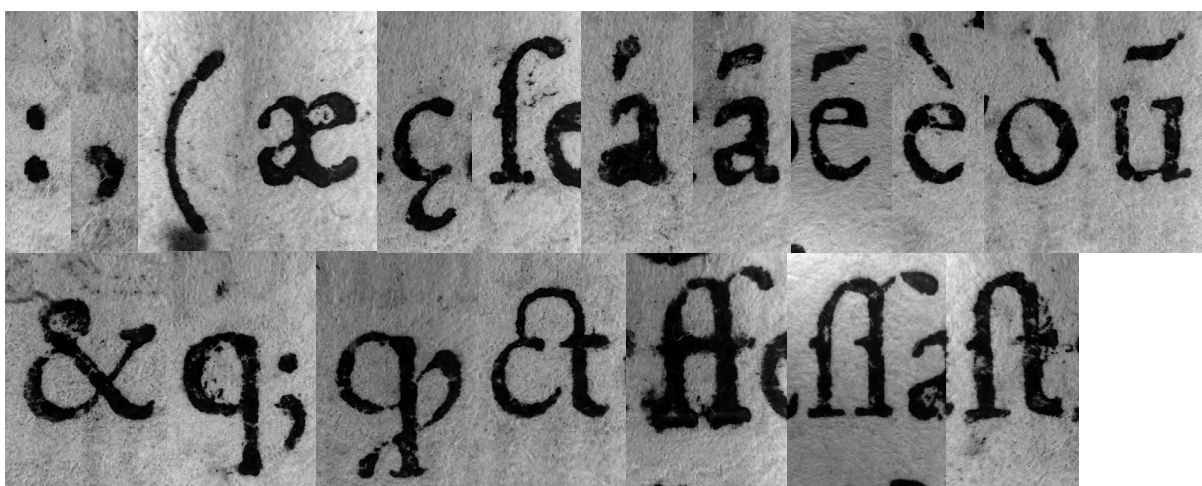 : , ( æ ç ſ á ā ē è ò ū
& q; ꝙ ct ff ſſ ſt